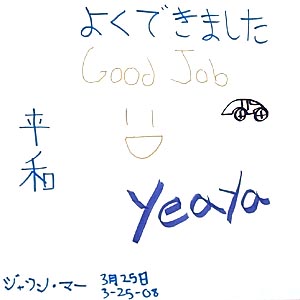 よくできました
Good Job
平和
yeaYa
ジャワン・マー
3月25日
3-25-08